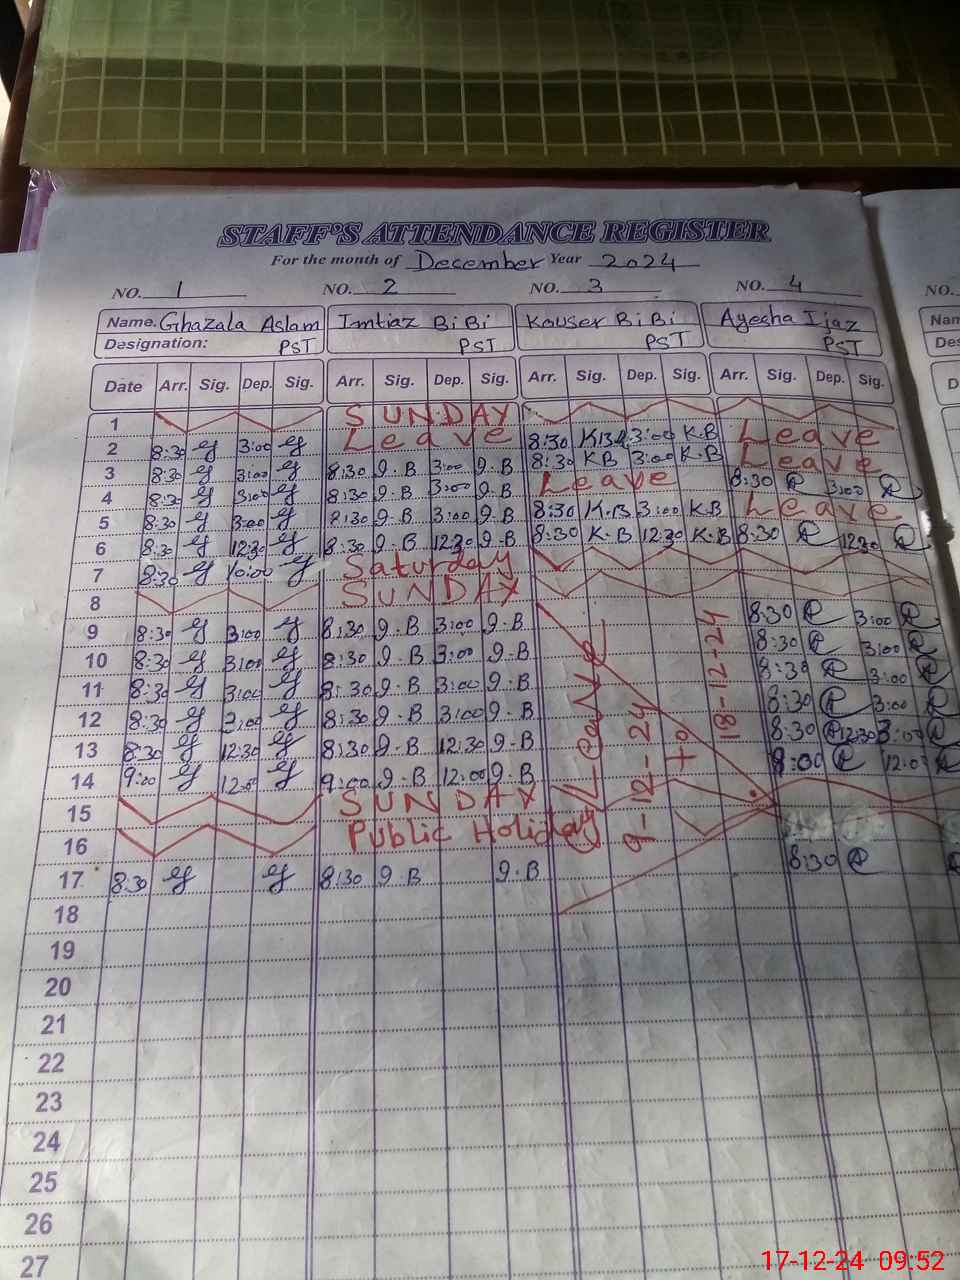 STAFF'S ATTENDANCE REGISTER
For the month of December Year 2024
NO. 1 NO. 2 NO. 3 NO. 4 NO.
Name. Ghazala Aslam Imtiaz BiBi Kouser BiBi Ayesha Ijaz Nam
Designation: PST PST PST PST Des
Date Arr. Sig. Dep. Sig. Arr. Sig. Dep. Sig. Arr. Sig. Dep. Sig. Arr. Sig. Dep. Sig. D
1 SUNDAY
2 8:30 3:00 Leave 8:30 KB 3:00 K.B Leave
3 8:30 3:00 8:30 I.B 3:00 I.B 8:30 KB 3:00 K.B Leave
4 8:30 3:00 8:30 I.B 3:00 I.B Leave 8:30 3:00
5 8:30 3:00 8:30 I.B 3:00 I.B 8:30 K.B 3:00 K.B Leave
6 8:30 12:30 8:30 I.B 12:30 I.B 8:30 K.B 12:30 K.B 8:30 12:30
7 8:30 10:00 Saturday
8 SUNDAY
9 8:30 3:00 8:30 I.B 3:00 I.B 8:30 3:00
10 8:30 3:00 8:30 I.B 3:00 I.B 8:30 3:00
11 8:30 3:00 8:30 I.B 3:00 I.B 8:30 3:00
12 8:30 3:00 8:30 I.B 3:00 I.B 8:30 3:00
13 8:30 12:30 8:30 I.B 12:30 I.B 8:30 12:30 3:00
14 9:00 12:00 9:00 I.B 12:00 I.B 9:00 12:0
Leave
9-12-24
to
18-12-24
15 SUNDAY
16 Public Holiday
17 8:30 8:30 I.B I.B 8:30
18
19
20
21
22
23
24
25
26
27
17-12-24 09:52